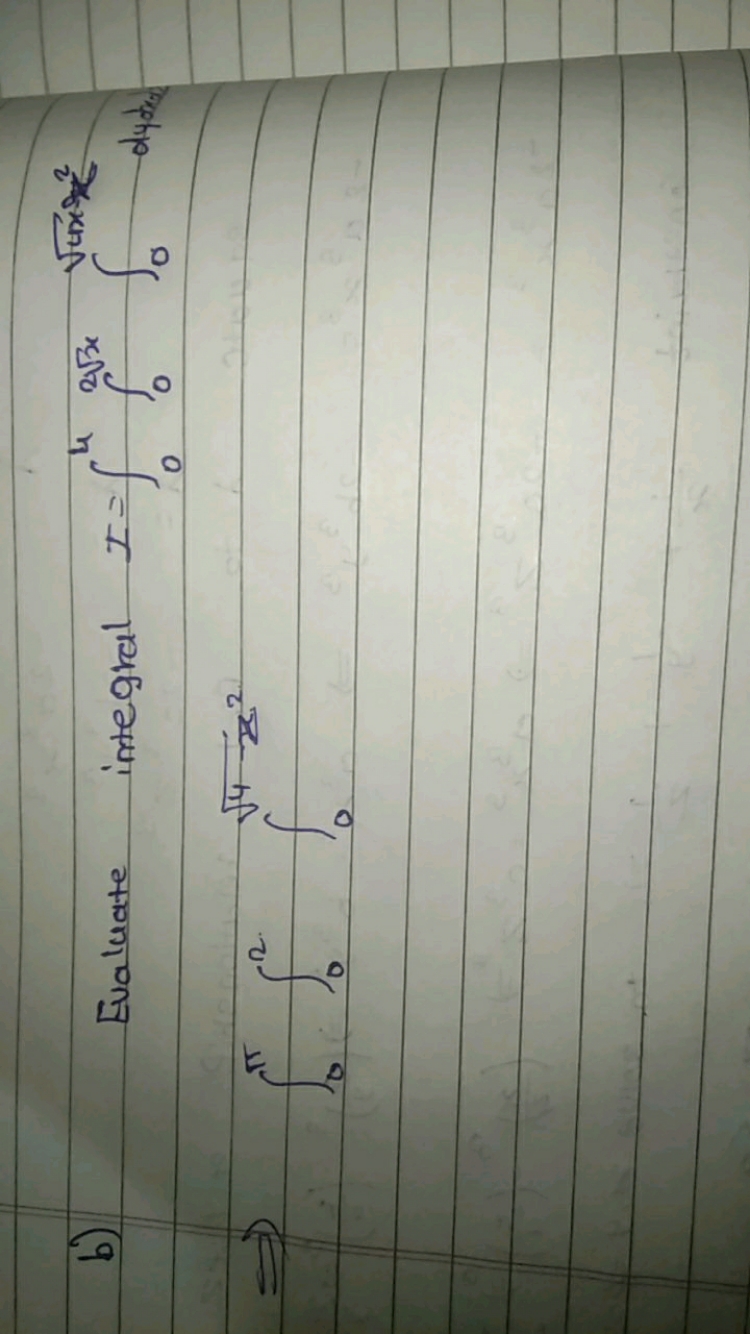 b) Evaluate integral I = ∫₀⁴ ∫₀^{2√3x} ∫₀^{√4x-x²} dydxd
⇒ ∫₀^π ∫₀^2 ∫₀^{√4-x²}